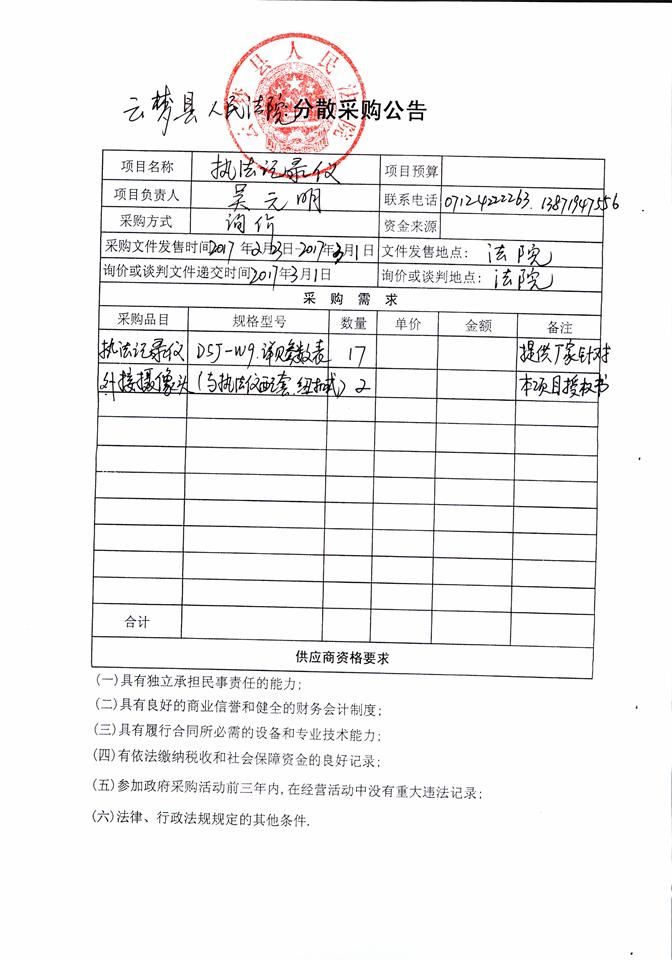 云梦县人民法院
云梦县人民法院分散采购公告
项目名称 执法记录仪 项目预算
项目负责人 吴元明 联系电话 07124222263. 13871947556
采购方式 询价 资金来源
采购文件发售时间2017年2月23日-2017年3月1日 文件发售地点: 法院
询价或谈判文件递交时间2017年3月1日 询价或谈判地点: 法院
采购需求
采购品目 规格型号 数量 单价 金额 备注
执法记录仪 DSJ-W9.详见参数表 17 提供厂家针对
外接摄像头 (与执法仪配套.纽扣式) 2 本项目授权书
合计
供应商资格要求
(一)具有独立承担民事责任的能力;
(二)具有良好的商业信誉和健全的财务会计制度;
(三)具有履行合同所必需的设备和专业技术能力;
(四)有依法缴纳税收和社会保障资金的良好记录;
(五)参加政府采购活动前三年内,在经营活动中没有重大违法记录;
(六)法律、行政法规规定的其他条件.